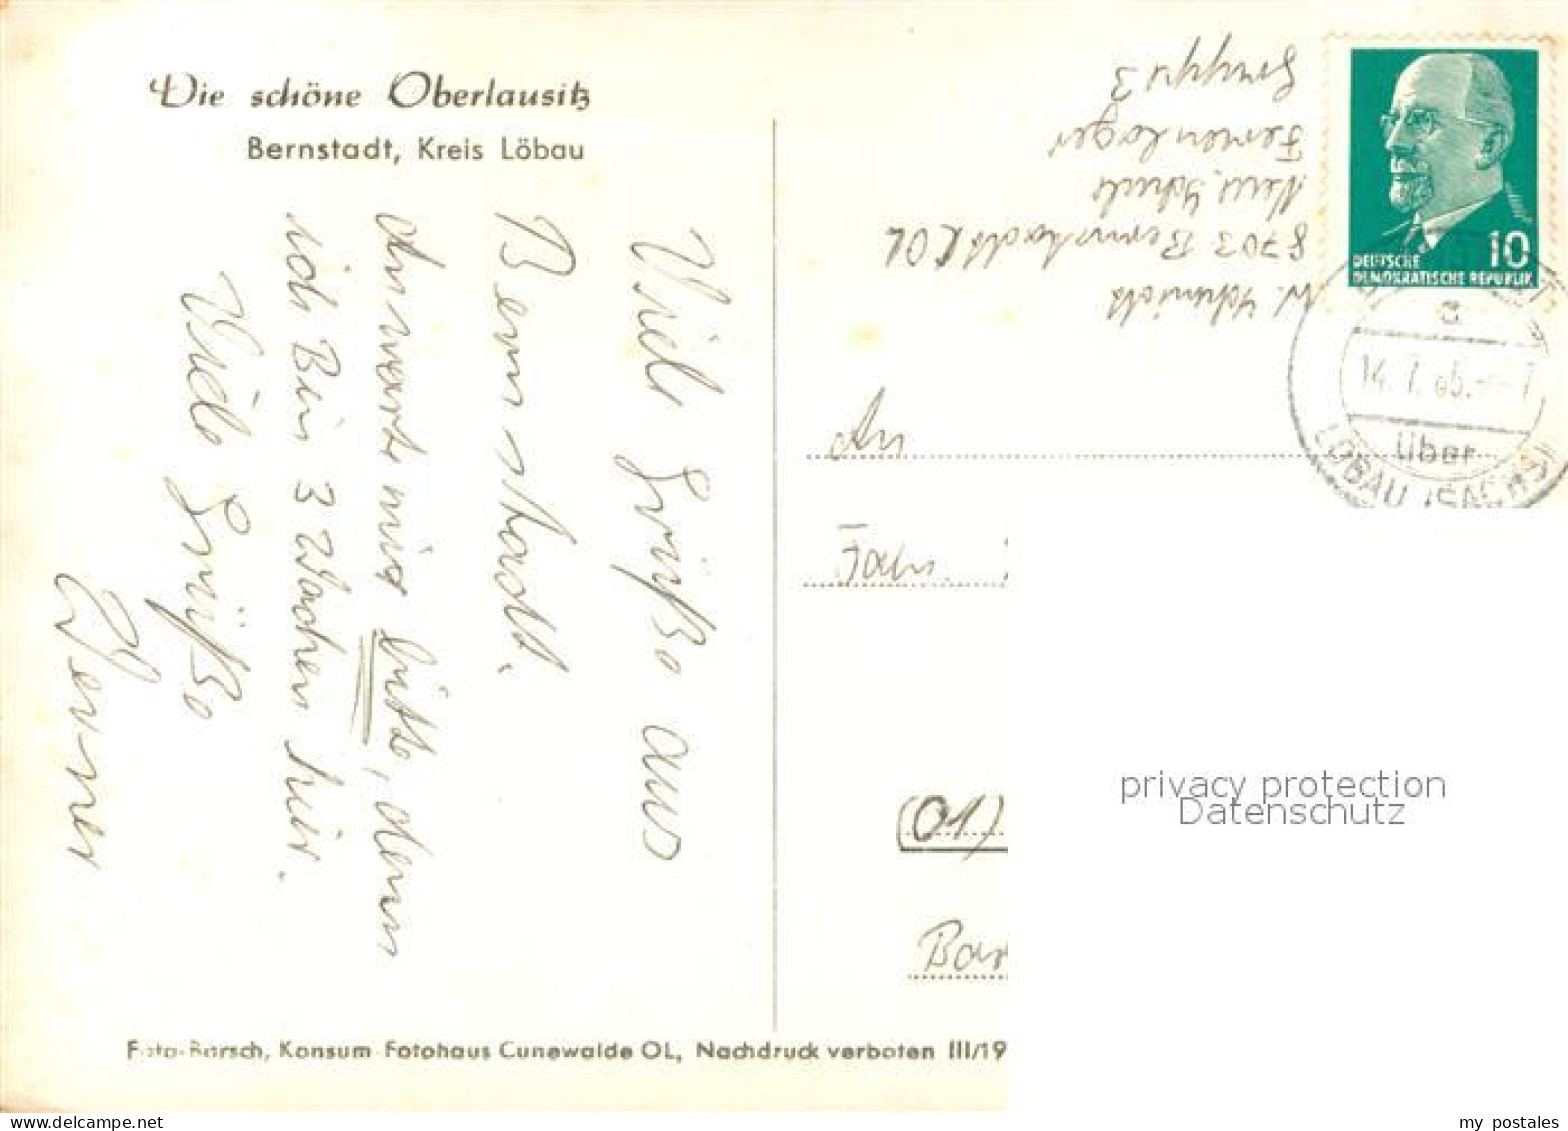 Die schöne Oberlausitz
Bernstadt, Kreis Löbau
Viele Grüße aus
Bernstadt.
Antworte mir bitte, denn
ich Bin 3 Wochen hir.
Viele Grüße
Werner
W. Schmidt
8703 Bernstadt OL
Neue Schule
Ferienlager
Gruppe 3
DEUTSCHE
DEMOKRATISCHE REPUBLIK
10
a
14.7.65.
über
LÖBAU (SACHS)
An
Fam.
(01)
Foto-Barsch, Konsum-Fotohaus Cunewalde OL, Nachdruck verboten III/19
privacy protection
Datenschutz
my postales